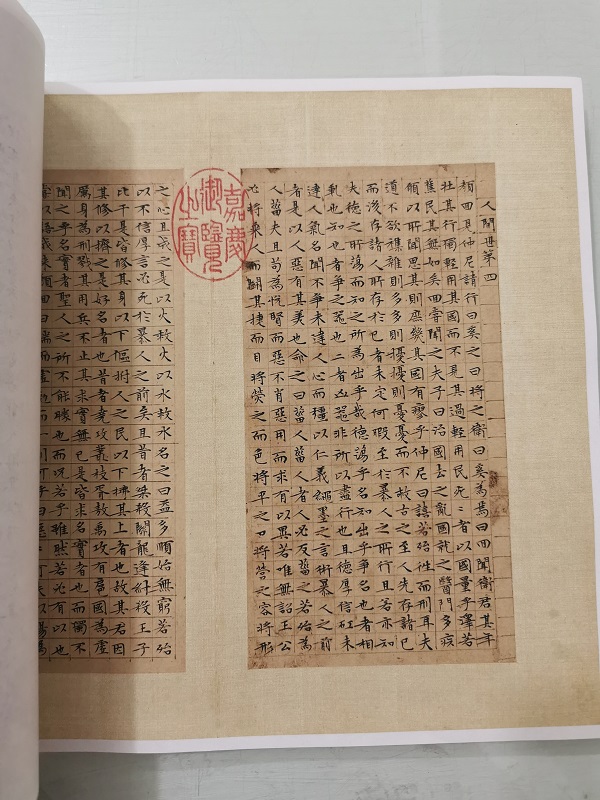 人間世第四
顏回見仲尼請行曰奚之曰將之衛曰奚為焉曰回聞衛君其年
壯其行獨輕用其國而不見其過輕用民死〻者以國量乎澤若
蕉民其無如矣回嘗聞之夫子曰治國去之亂國就之醫門多疾
願以所聞思其則庶幾其國有瘳乎仲尼曰譆若殆往而刑耳夫
道不欲襍雜則多多則擾擾則憂憂而不救古之至人先存諸己
而後存諸人所存於己者未定何暇至於暴人之所行且若亦知
夫德之所蕩而知之所為出乎哉德蕩乎名知出乎爭名也者相
軋也知也者爭之器也二者凶器非所以盡行也且德厚信矼未
達人氣名聞不爭未達人心而彊以仁義繩墨之言術暴人之前
者是以人惡有其美也命之曰菑人菑人者人必反菑之若殆為
人菑夫且苟為悅賢而惡不肖惡用而求有以異若唯無詔王公
必將乘人而鬭其捷而目將熒之而色將平之口將營之容將形
嘉慶御覽之寶
之心且成之是以火救火以水救水名之曰益多順始無窮若殆
以不信厚言必死於暴人之前矣且昔者桀殺關龍逢紂殺王子
比干是皆修其身以下傴拊人之民以下拂其上者也故其君因
其修以擠之是好名者也昔者堯攻叢枝胥敖禹攻有扈國為虛
厲身為刑戮其用兵不止其求實無已是皆求名實者也而獨不
聞之乎名實者聖人之所不能勝也而況若乎雖然若必有以也
嘗以語我來顏回曰端而虛勉而一則可乎曰惡惡可夫以陽為